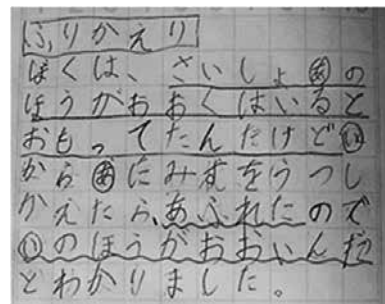 ふりかえり
ぼくは、さいしょあの
ほうがおおくはいると
おもってたんだけどい
からあにみずをうつし
かえたら、あふれたので
いのほうがおおいんだ
とわかりました。